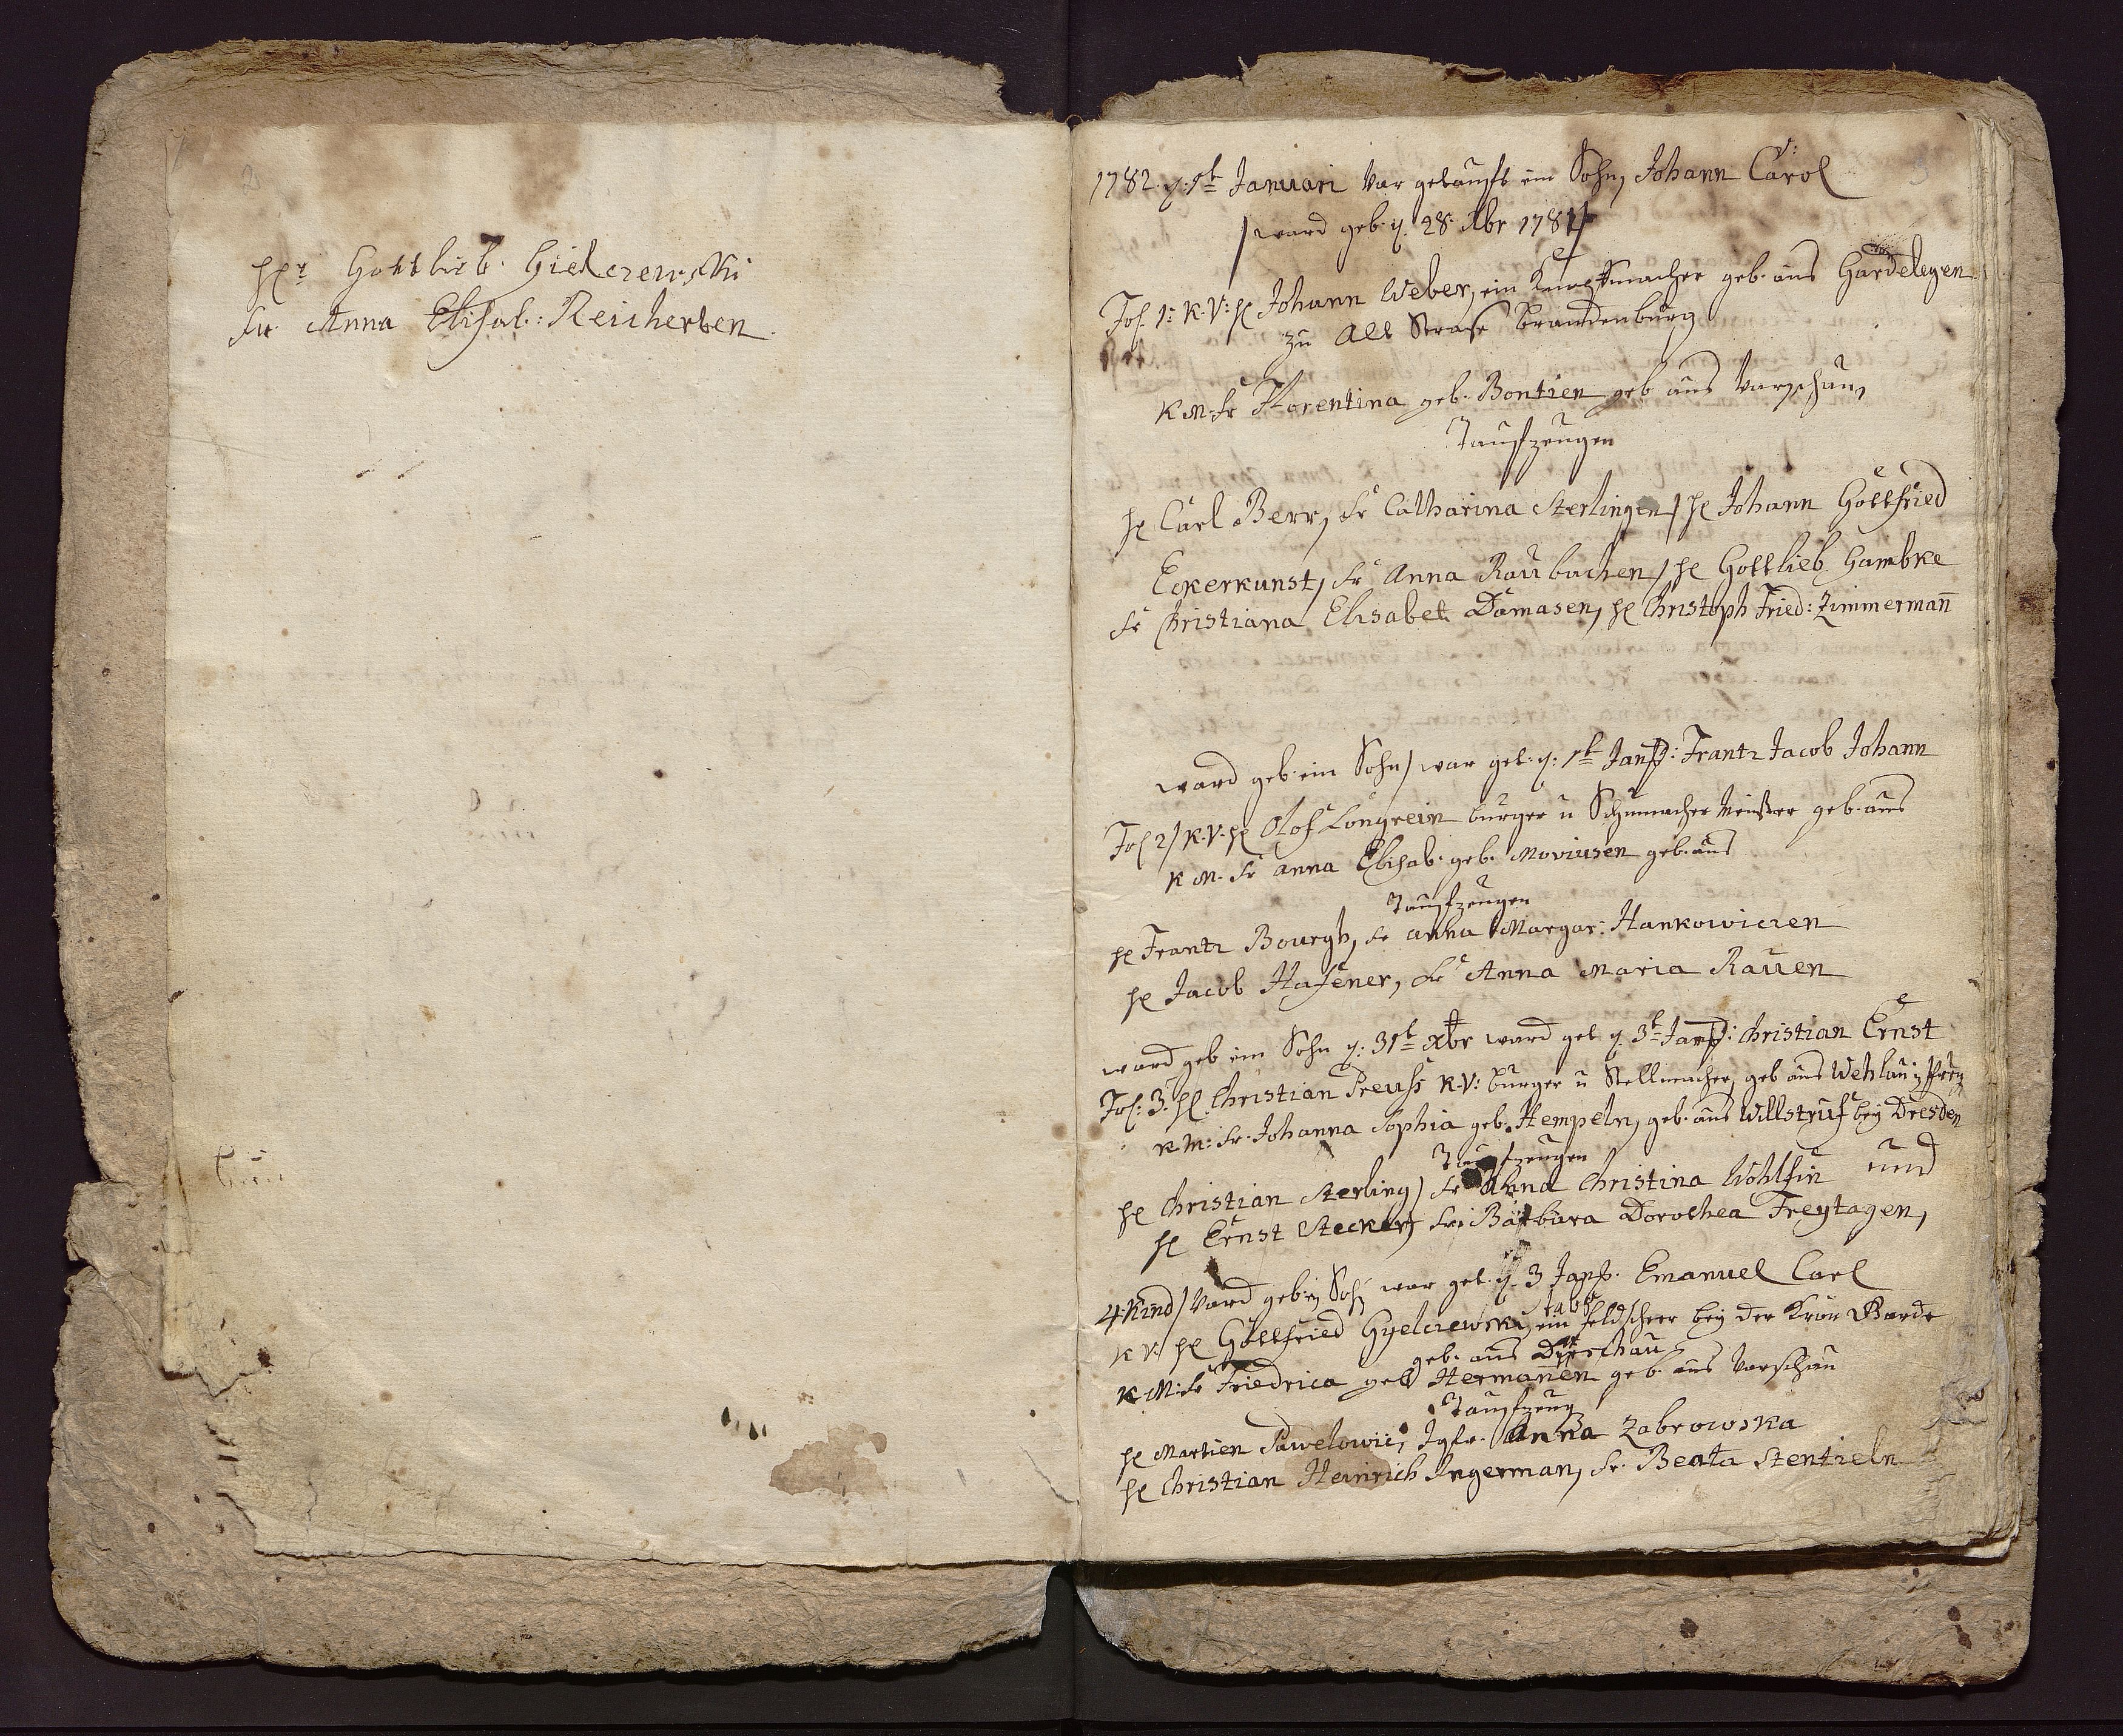 HEr Gottlieb Gielczewski
Fr Anna Elisab: Reicherten
1782. d: 1t Januari war getaufft ein Sohn, Johann Carol
/ward geb: d. 28. Xbr 1781/
1: K. V: HE Johann Weber, ein Knopffmacher geb. aus Gardelegen
zu Brandenburg
K M. Fr Florentina geb. Bontien geb aus Varschau,
Taufzeugen
HE Carl Berr, Fr Catharina Sterlingen, HE Johann Gottfried
Eckerkunst, Fr Anna Raubachen, HE Gottlieb Hambke
Fr Christiana Elisabet Damasen, HE Christoph Fried: Zimmerman̄
ward geb. ein Sohn, war get. d: 1t Jan: Frantz Jacob Johann
2) K. V. HE Olof Longrein bürger u Schumacher Meister geb. aus
K M. Fr Anna Elisab. geb. Moviusen geb. aus
Taufzeugen
HE Frantz Bourgh, Fr Anna Margar: Hankowiczen
HE Jacob Hafener, Fr Anna Maria Rauen
ward geb ein Sohn d: 31t Xbr ward get d. 3t Jan: Christian Ernst
3. HE Christian Preuss K. V: bürger u Stellmacher, geb aus Wehlau
K M: Fr. Johanna Sophia geb. Hempeln, geb. aus Willstruf bey Dresden
Taufzeugen
HE Christian Sterling, Fr Anna Christina Wohlfin und
HE Ernst Stecker, Fr: Barbara Dorothea Freytagen,
4. Kind/ Ward geb. ein Sohn war get. d. 3 Jan. Emanuel Carl
K V: HE Gottfried Gyelczewski, ein feldscheer bey der Kron Garde
geb. aus Dirschau
K M: Fr Friedrica geb Hermanen geb. aus Varschau
Taufzeug
HE Martien Pawelowic, Jgfr. Anna Zabrowska
HE Christian Heinrich Ingerman, Fr. Beata Stentzeln